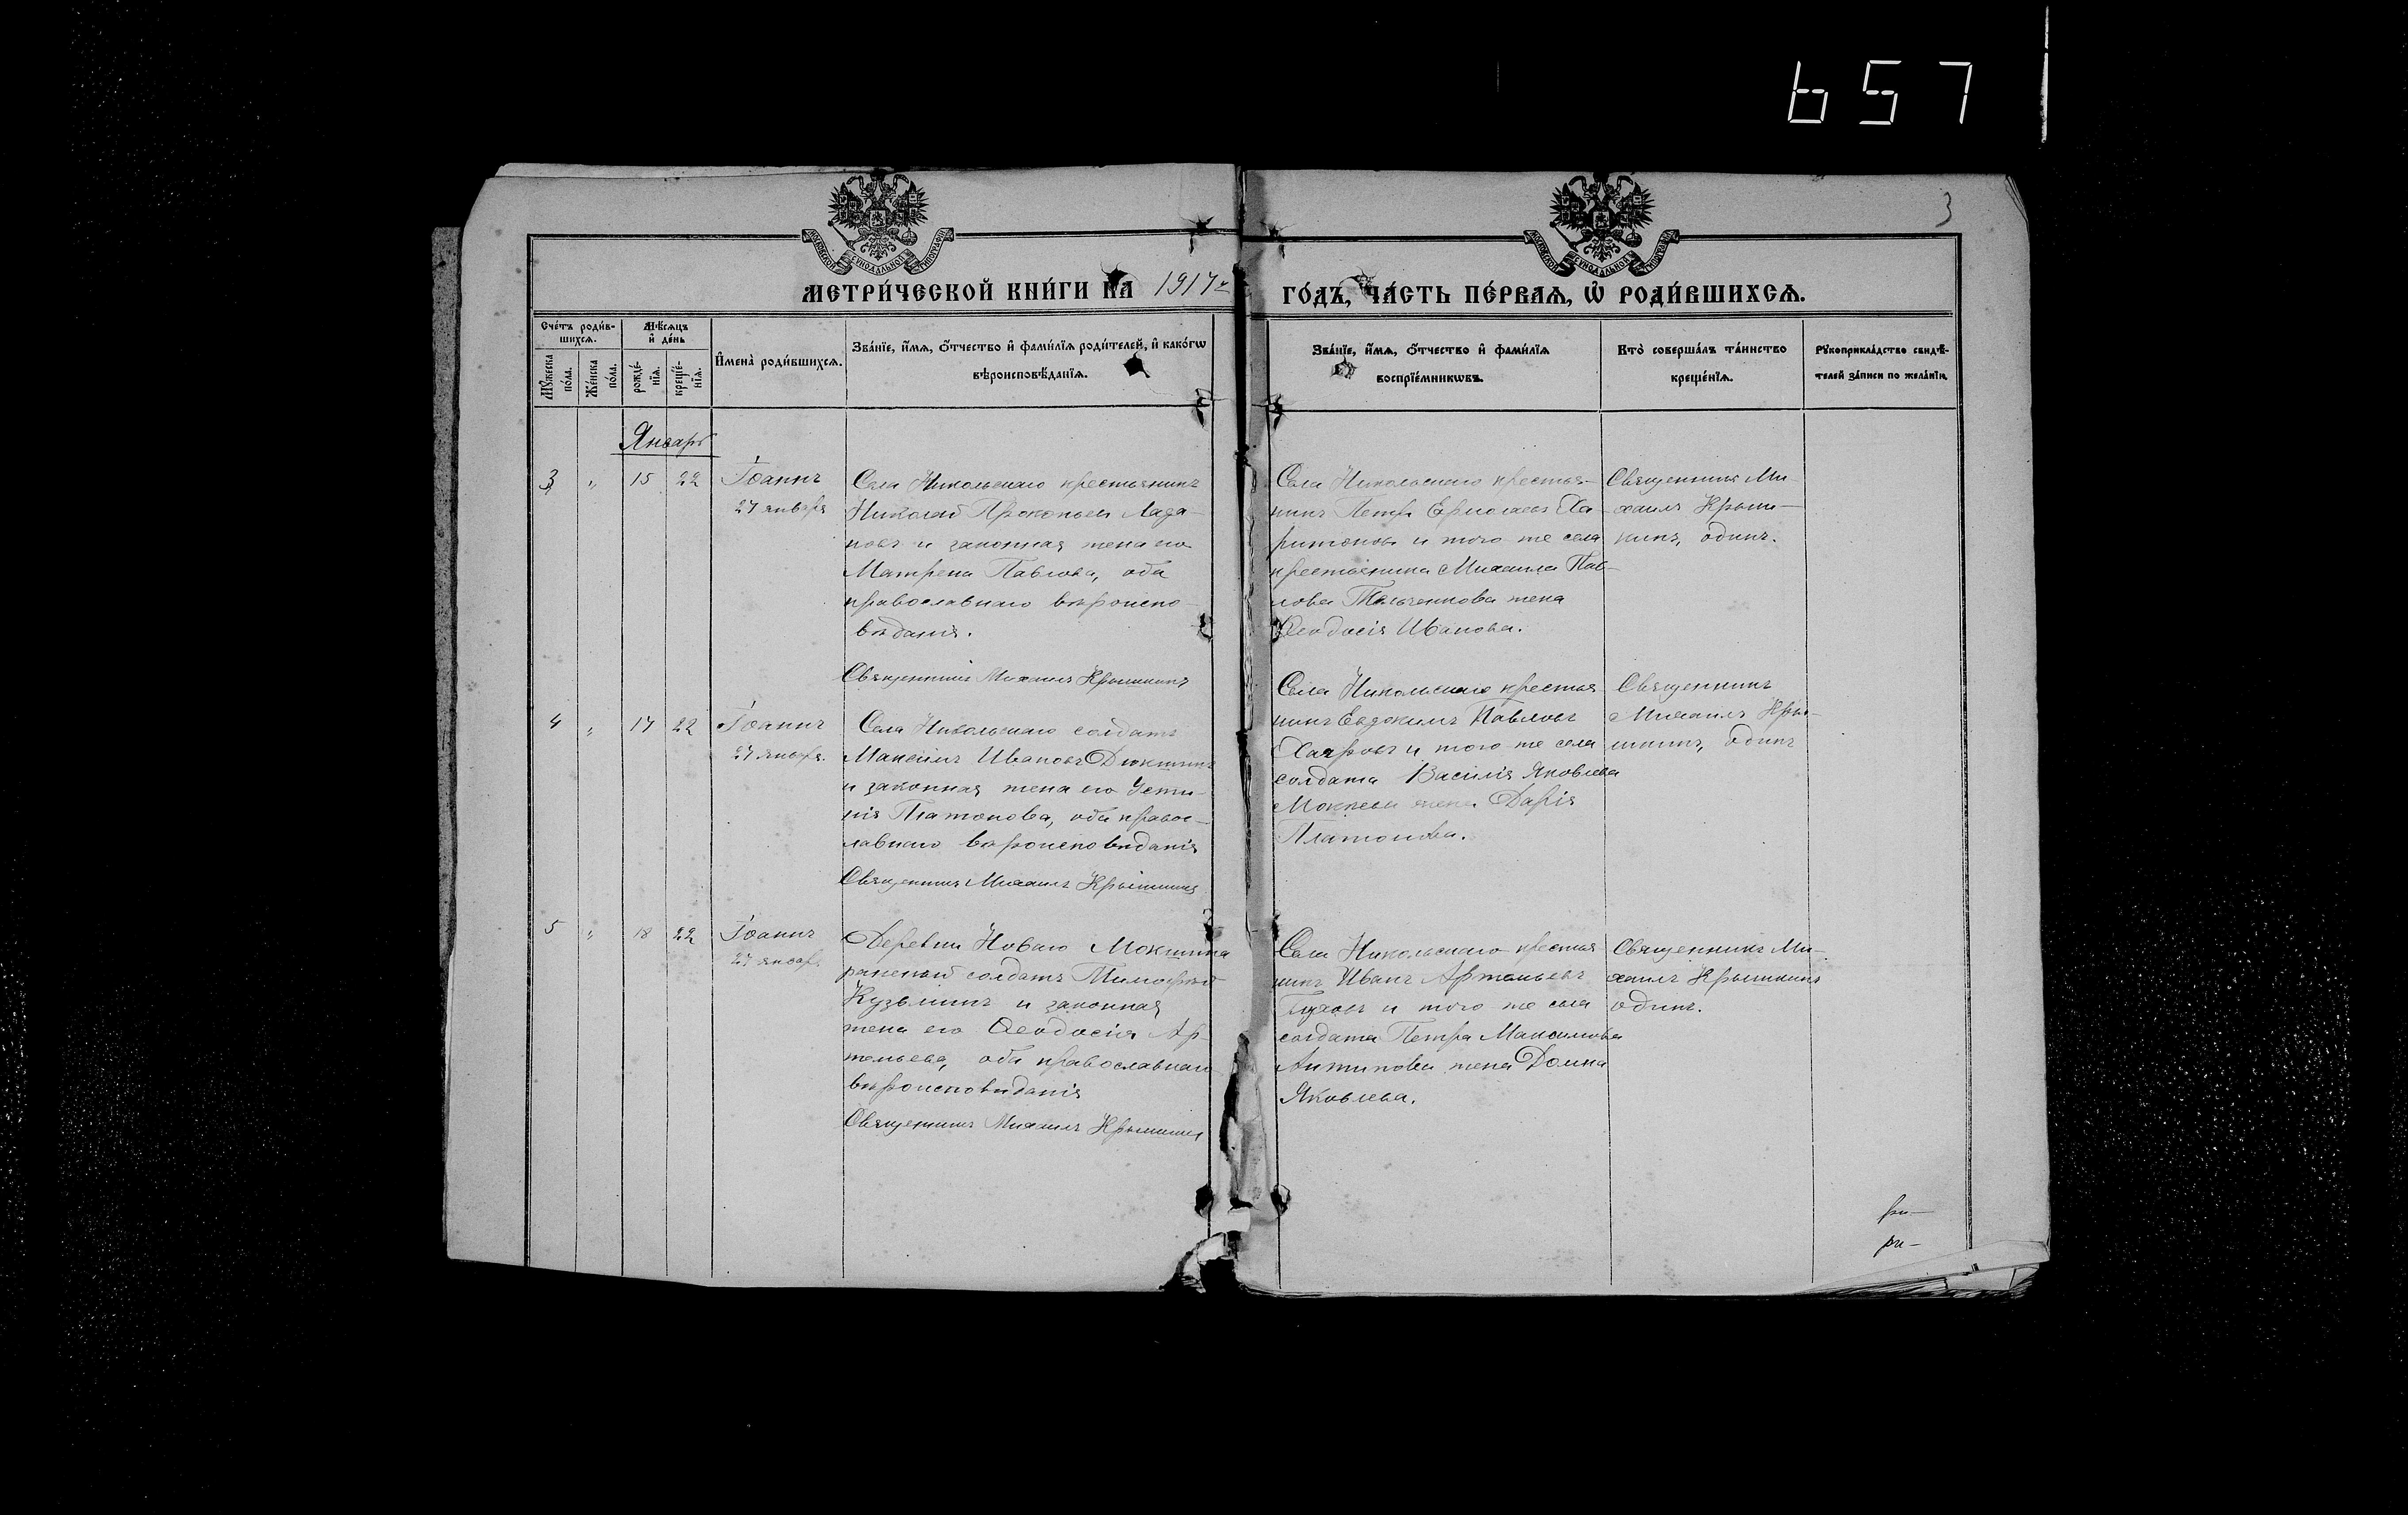 657
3
МЕТРИ́ЧЕСКОЙ КНИ́ГИ НА 1917 г
ГО́ДЪ, ЧА́СТЬ ПЕ́РВАЯ, Ѽ РОДИ́ВШИХСЯ.
Сче́тъ роди́в-
шихся.
Мѣ́сяцъ
и де́нь
Му́жеска
по́ла.
Же́нска
по́ла.
рожде́-
нїя.
креще́-
нїя.
Имена̀ роди́вшихся.
Зва́нїе, и́мя, ѻ́тчество и фами́лїя роди́телей, и како́гѡ
вѣроисповѣ́данїя.
Зва́нїе, и́мя, ѻ́тчество и фами́лїя
воспрїе́мникѡвъ.
Кто̀ соверша́лъ та́инство
креще́нїя.
Рукоприкла́дство свидѣ́-
телей за́писи по жела́нїю.
Январь
3 " 15 22 Іоаннъ
27 января
Села Никольскаго крестьянинъ
Николай Прокопьевъ Лада-
новъ и законная жена его
Матрена Павлова, оба
православнаго вѣроиспо-
вѣданія.
Священникъ Михаилъ Крышкинъ
Села Никольскаго крестья-
нинъ Петръ Ермолаевъ Ха-
ритоновъ и того же села
крестьянина Михаила Пав-
лова жена
Ѳеодосія Иванова.
Священникъ Ми-
хаилъ Крыш-
кинъ, одинъ.
4 " 17 22 Іоаннъ
27 января.
Села Никольскаго солдатъ
Максимъ Ивановъ Дюкшинъ
и законная жена его Усти-
нія Платонова, оба правос-
лавнаго вѣроисповѣданія
Священникъ Михаилъ Крышкинъ
Села Никольскаго крестья-
нинъ Евдокимъ Павловъ
и того же села
солдата Василія Яковлева
жена Дарія
Платонова.
Священникъ
Михаилъ Кры-
шкинъ, одинъ
5 " 18 22 Іоаннъ
27 январ.
Деревни Новаго Мокшина
раненый солдатъ Тимофей
Кузьминъ и законная
жена его Ѳеодосія Ар-
темьева, оба православнаго
вѣроисповѣданія
Священникъ Михаилъ Крышкинъ
Села Никольскаго крестья
нинъ Иванъ Артемьевъ
и того же села
солдата Петра Максимова
Антипова жена Домна
Яковлева.
Священникъ Ми-
хаилъ Крышкинъ
одинъ.